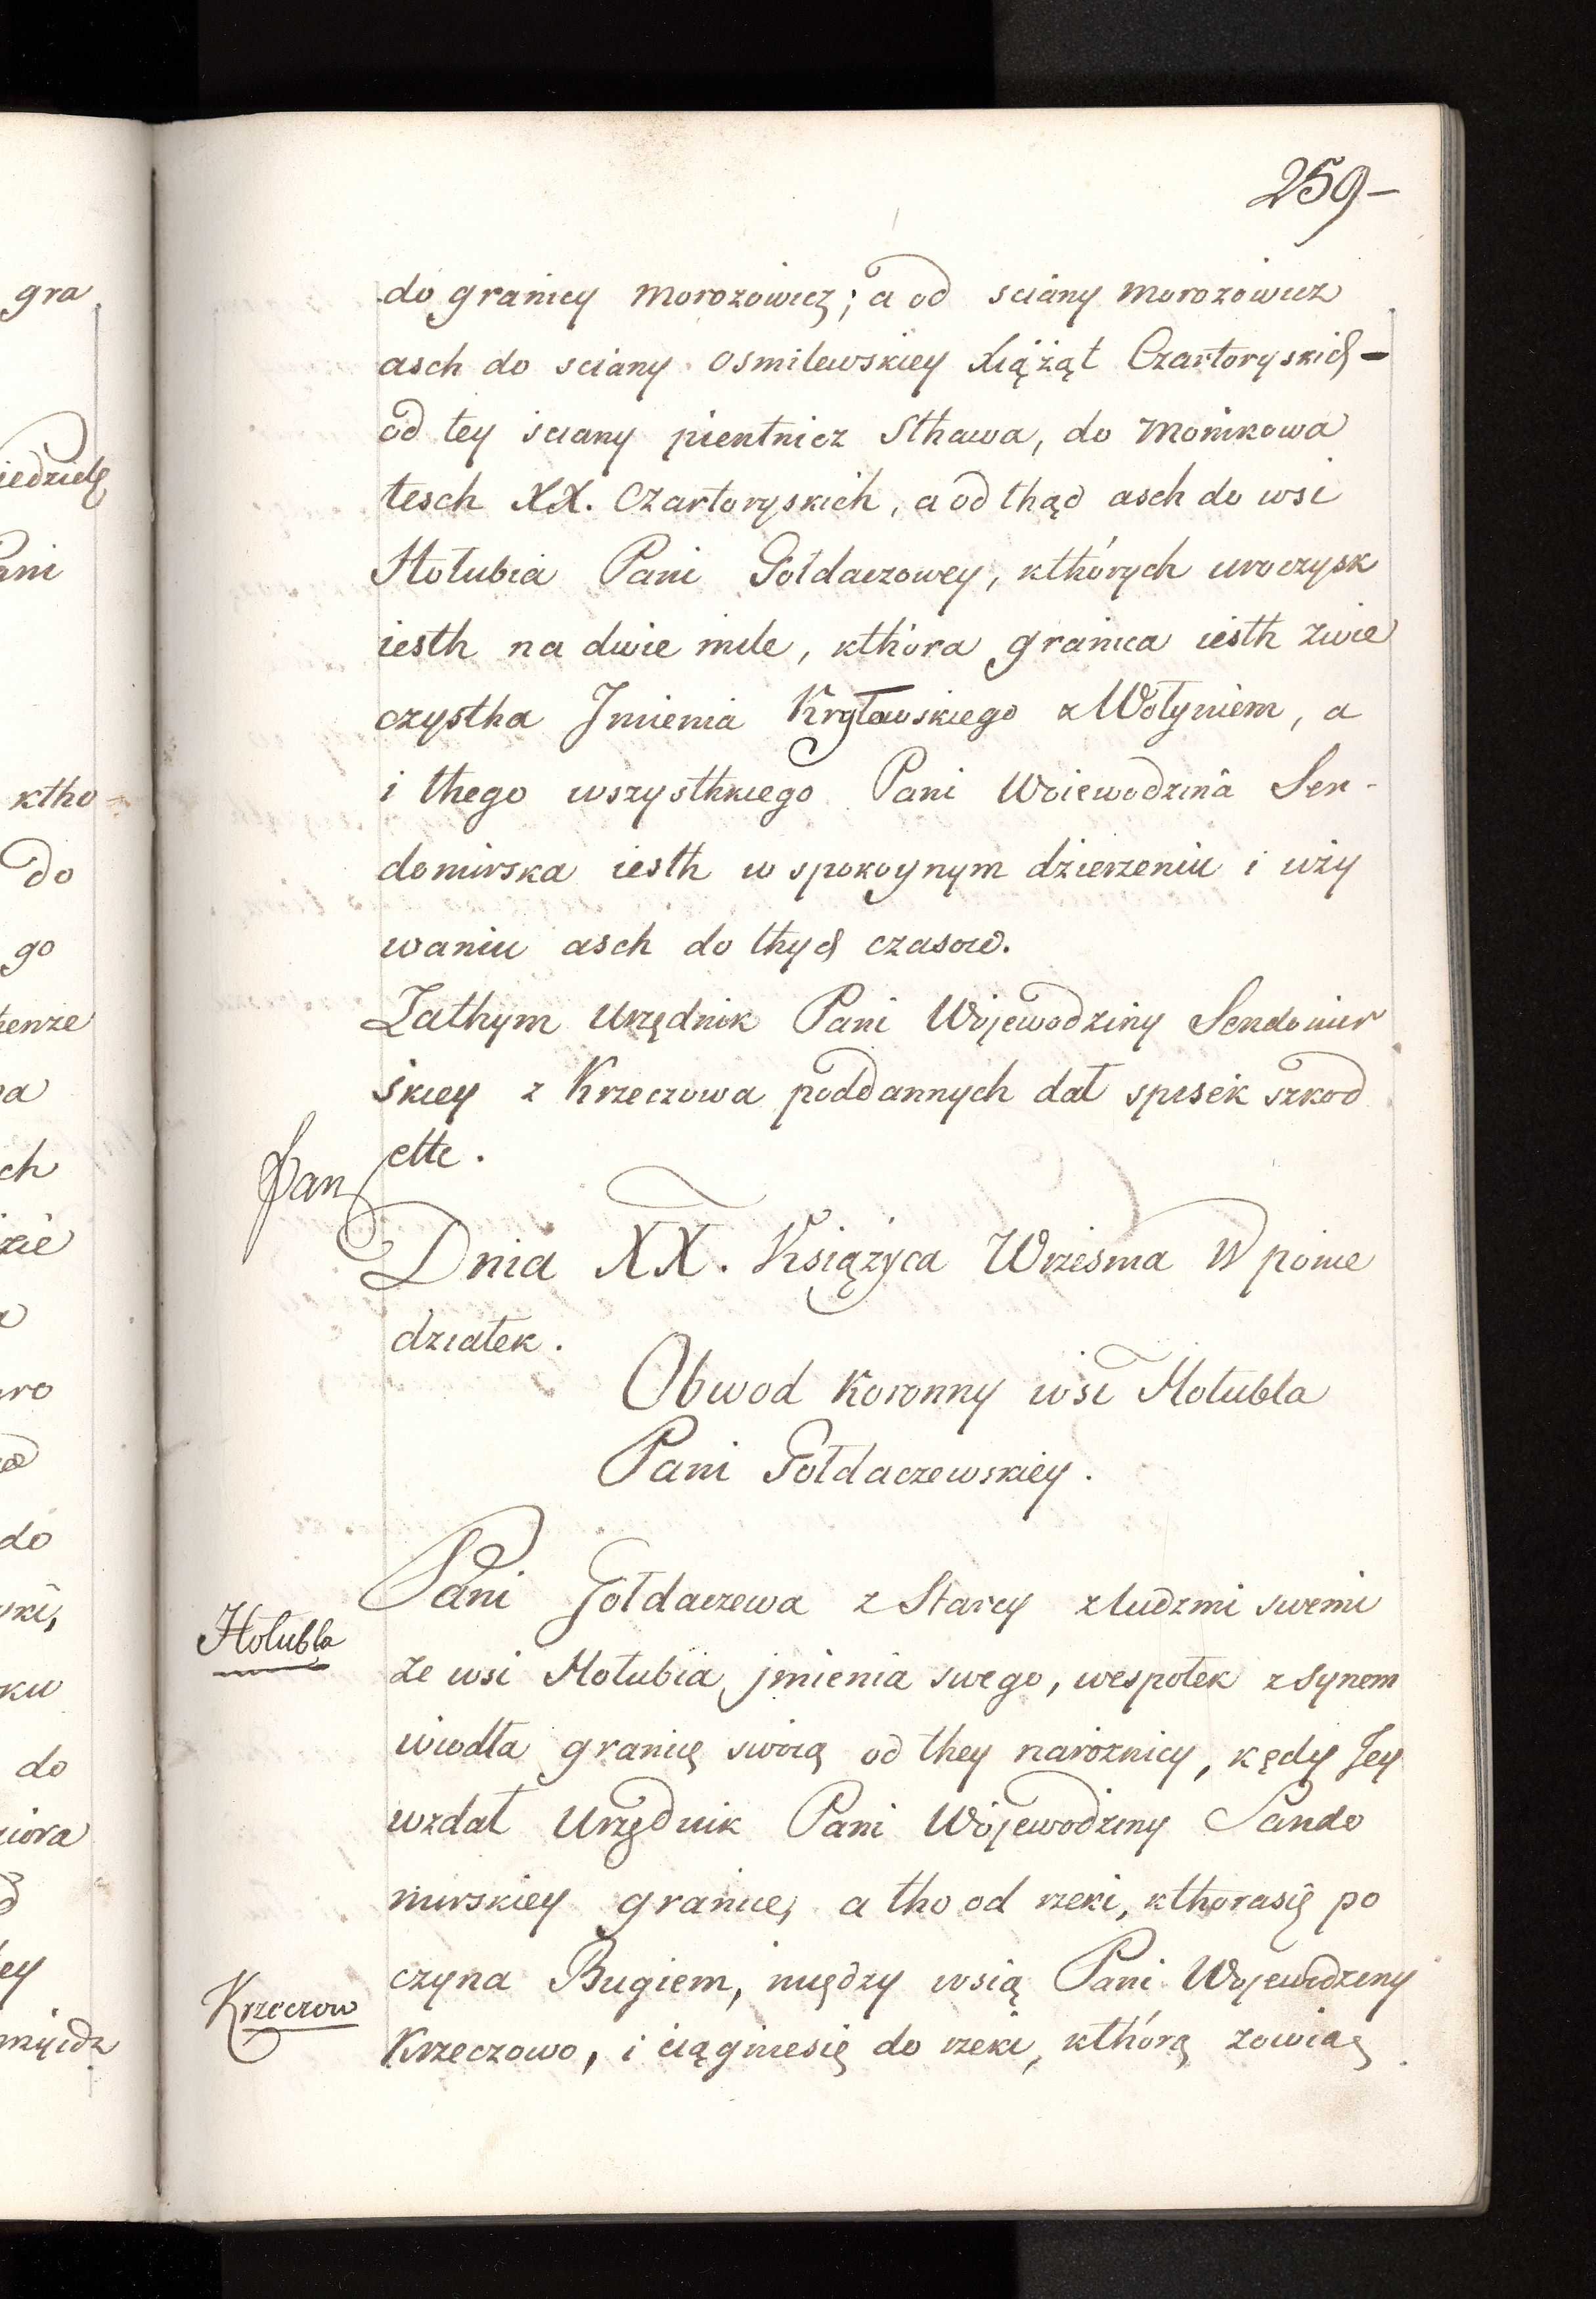 259-
do granicy morozowicz; a od sciany morozowicz
asch do sciany osmilewskiey Xiążąt Czartoryskich -
od tey sciany pientnicz Sthawa, do Monikowa
tesch XX. Czartoryskich, a od thąd asch do wsi
Hołubia Pani Gołdaczowey, kthórych uroczysk
iesth na dwie mile, kthora granica iesth zwie
czystha Jmienia Kryławskiego z Wołyniem, a
i thego wszysthkiego Pani Woiewodzina Sen-
domirska iesth w spokoynym dzierzeniu i uży
waniu asch do thych czasow.
Zathym Urzędnik Pani Wojewodziny Sendomir
skiey z Krzeczowa poddannych dał spisek szkod
ette.
Pan
Dnia XX. Książyca Wrzesnia W ponie
działek.
Obwod Koronny wsi Hołubla
Pani Gołdaczewskiey.
Pani Gołdaczewa z Starcy z ludzmi swemi
Hołubla
ze wsi Hołubia jmienia swego, wespołek z synem
wiodła granicę swoią od they naroznicy, kędy Jey
wzdał Urzędnik Pani Wojewodziny Sando
mirskiey granice, a tho od rzeki, kthorasię po
czyna Bugiem, między wsią Pani Wojewodziny
Krzeczow
Krzeczowo, i ciągniesię do rzeki, kthórą zowią
gra
iedzielę
ktho-
do
go
ch
do
ku
do